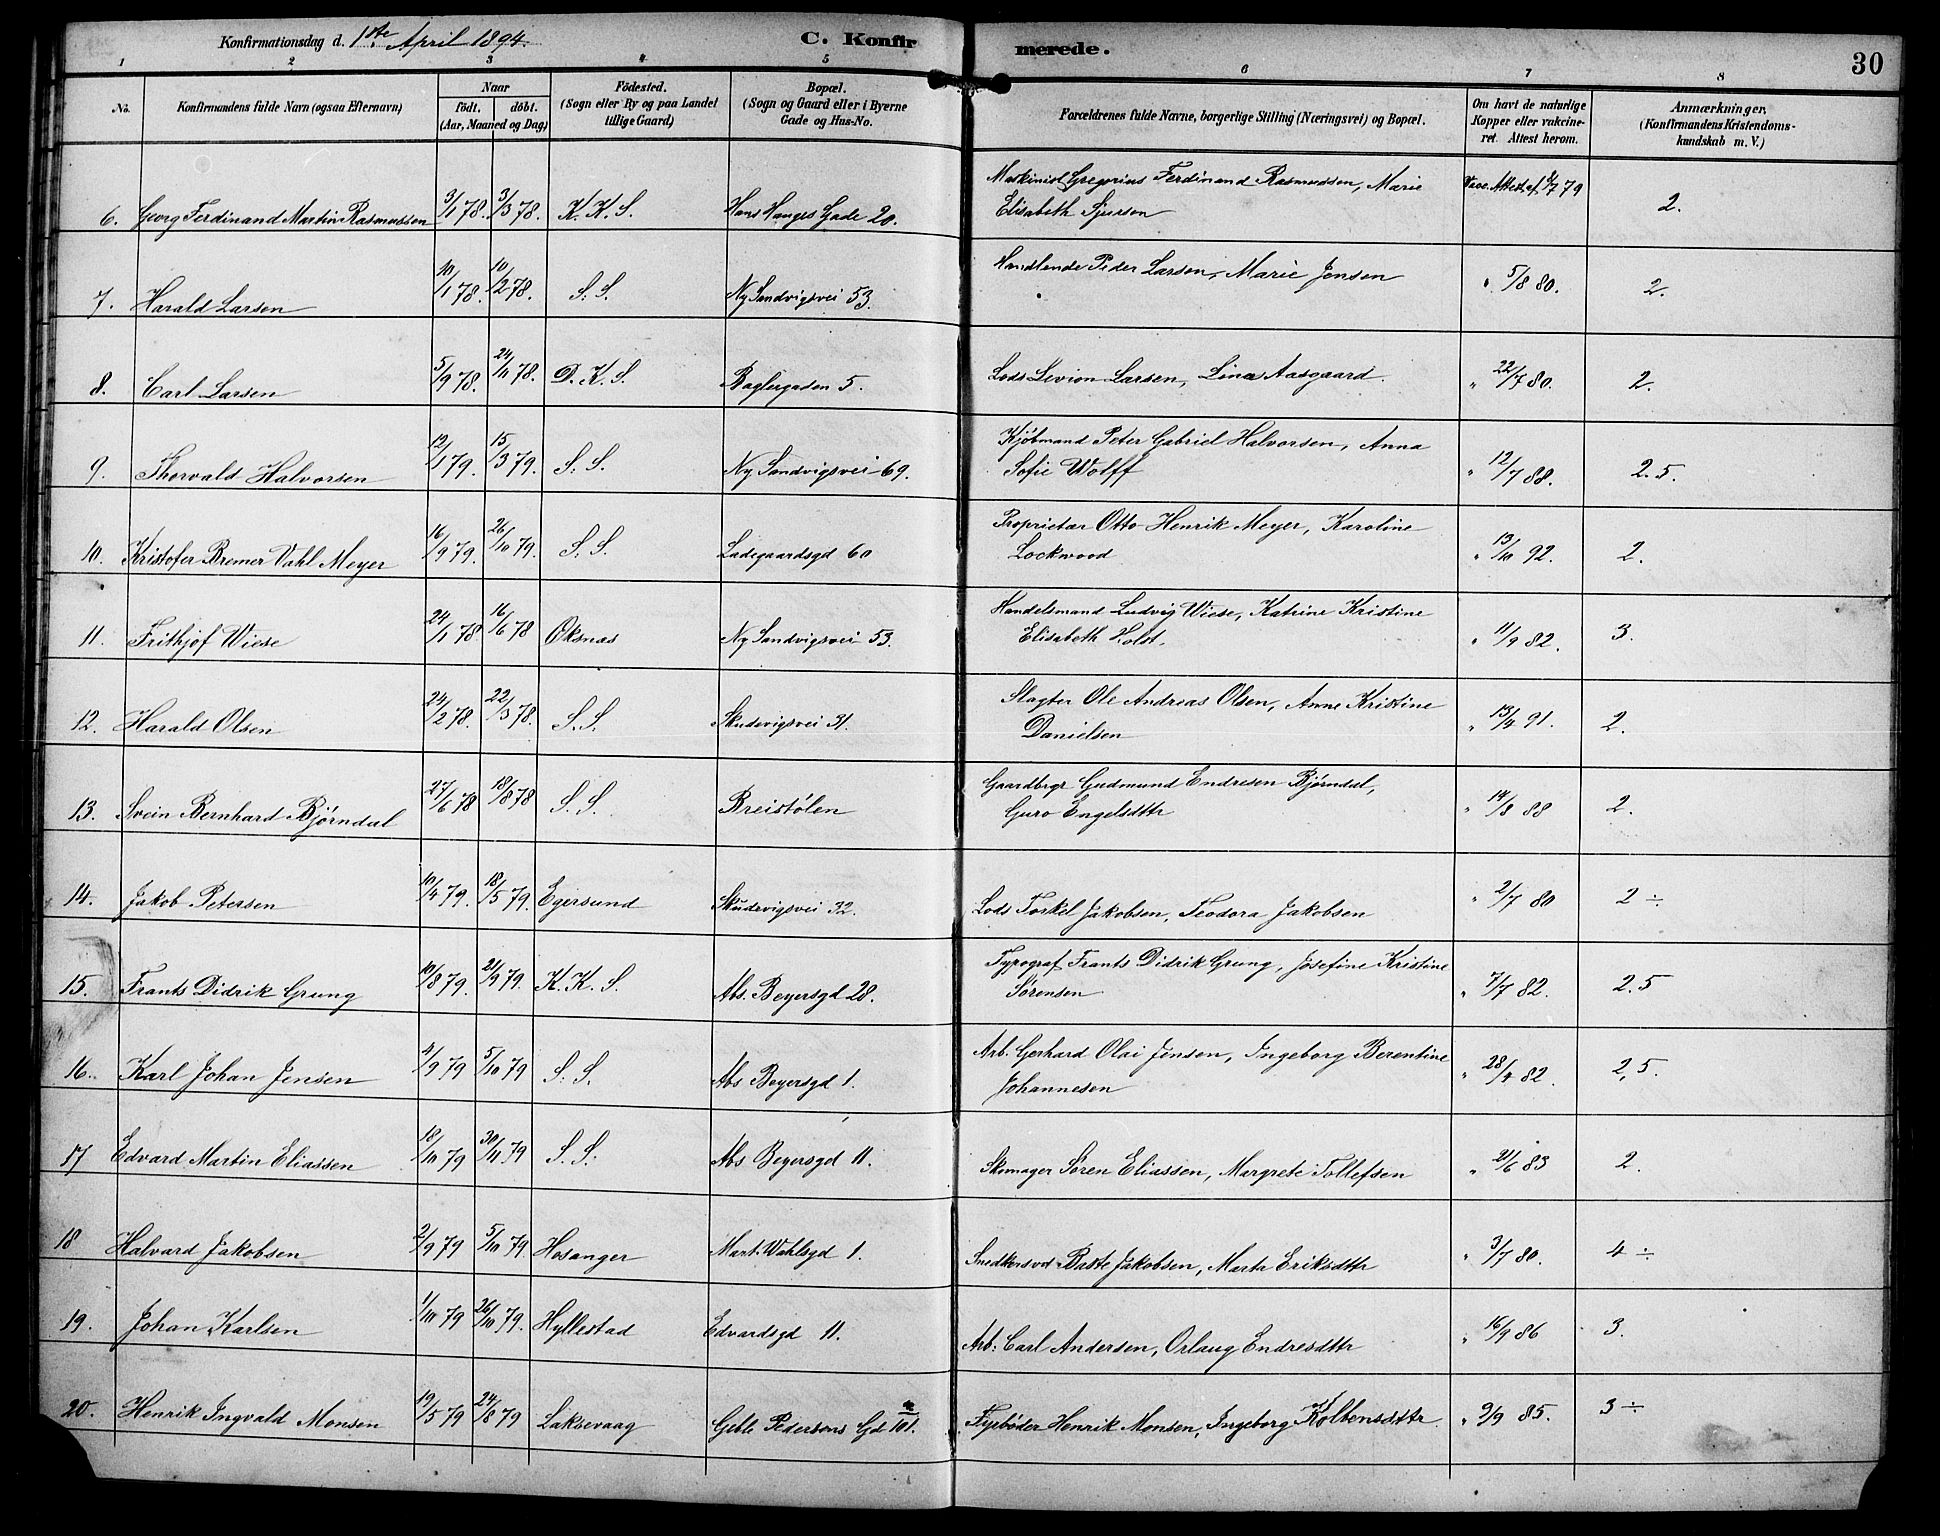 Konfirmationsdag d. 1ste April 1894.
C. Konfirmerede.
30
1 2 3 4 5 6 7 8
No.
Konfirmandens fulde Navn (ogsaa Efternavn)
Naar
födt. döbt.
(Aar, Maaned og Dag)
Födested.
(Sogn eller By og paa Landet
tillige Gaard)
Bopæl.
(Sogn og Gaard eller i Byerne
Gade og Hus-No.
Forældrenes fulde Navne, borgerlige Stilling (Næringsvei) og Bopæl.
Om havt de naturlige
Kopper eller vakcine-
ret. Attest herom.
Anmærkninger,
(Konfirmandens Kristendoms-
kundskab m. V.)
6. Georg Ferdinand Martin Rasmussen 3/1 78. 3/3 78. K. K. S. Hans Hauges Gade 20. Maskinist Gregorius Ferdinand Rasmussen, Marie
Elisabeth Sjursen Vacc. Attest af 79 2.
7. Harald Larsen 10/1 78. 10/2 78. S. S. Ny Sandvigsvei 53. Handlende Peder Larsen, Marie Jensen " 5/8 80. 2.
8. Carl Larsen 5/9 78. 24/11 78. D. K. S. Baglergaden 5. Lods Levion Larsen, Lina Aasgaard. " 22/7 80. 2.
9. Thorvald Halvorsen 12/1 79. 15/3 79. S. S. Ny Sandvigsvei 69. Kjøbmand Peter Gabriel Halvorsen, Anna
Sofie Wolff " 12/7 88. 2.5.
10. Kristofer Bremer Vahl Meyer 16/9 79. 26/10 79. S. S. Ladegaardsgd 60 Proprietær Otto Henrik Meyer, Karoline
Lockwood " 13/10 92. 2.
11. Frithjof Wiese 24/1 78. 16/6 78 Oksnæs Ny Sandvigsvei 53. Handelsmand Ludvig Wiese, Katrine Kristine
Elisabeth Holst. " 11/9 82. 3.
12. Harald Olsen 24/2 78. 22/3 78. S. S. Skudevigsvei 31. Slagter Ole Andreas Olsen, Anne Kristine
Danielsen " 13/4 91. 2.
13. Svein Bernhard Bjørndal 27/6 78 18/8 78 S. S. Breistølen Gaardbrgr Gudmund Endresen Bjørndal,
Guro Engelsdttr " 14/8 88 2.
14. Jakob Petersen 10/4 79. 18/5 79. Egersund Skudevigsvei 32. Lods Torkel Jakobsen, Teodora Jakobsen " 2/7 80 2 ÷
15. Frants Didrik Grung 10/8 79. 21/9 79. K. K. S. Abs. Beyersgd 28. Typograf Frants Didrik Grung, Josefine Kristine
Sørensen " 7/7 82. 2.5
16. Karl Johan Jensen 4/9 79 5/10 79 S. S. Abs Beyersgd 1. Arb. Gerhard Olai Jensen, Ingeborg Berentine
Johannesen " 28/4 82. 2,5.
17 Edvard Martin Eliassen 18/10 79 30/11 79 S. S. Abs Beyersgd 11. Skomager Søren Eliassen, Margrete Tollefsen " 21/6 83 2.
18 Halvard Jakobsen 2/9 79 5/10 79 Hosanger Mart. Wahlsgd 1. Snedkersvd Baste Jakobsen, Marta Eriksdttr " 3/7 80. 4 ÷
19. Johan Karlsen 1/10 79 26/10 79. Hyllestad Edvardsgd 11. Arb: Carl Andersen, Orlaug Endresdttr " 16/9 86 3.
20. Henrik Ingvald Monsen 19/5 79 24/8 79 Laksevaag Geble Pedersens Gd 101. a Fyrbøder Henrik Monsen, Ingeborg Kolbensdttr " 9/9 85. 3 ÷